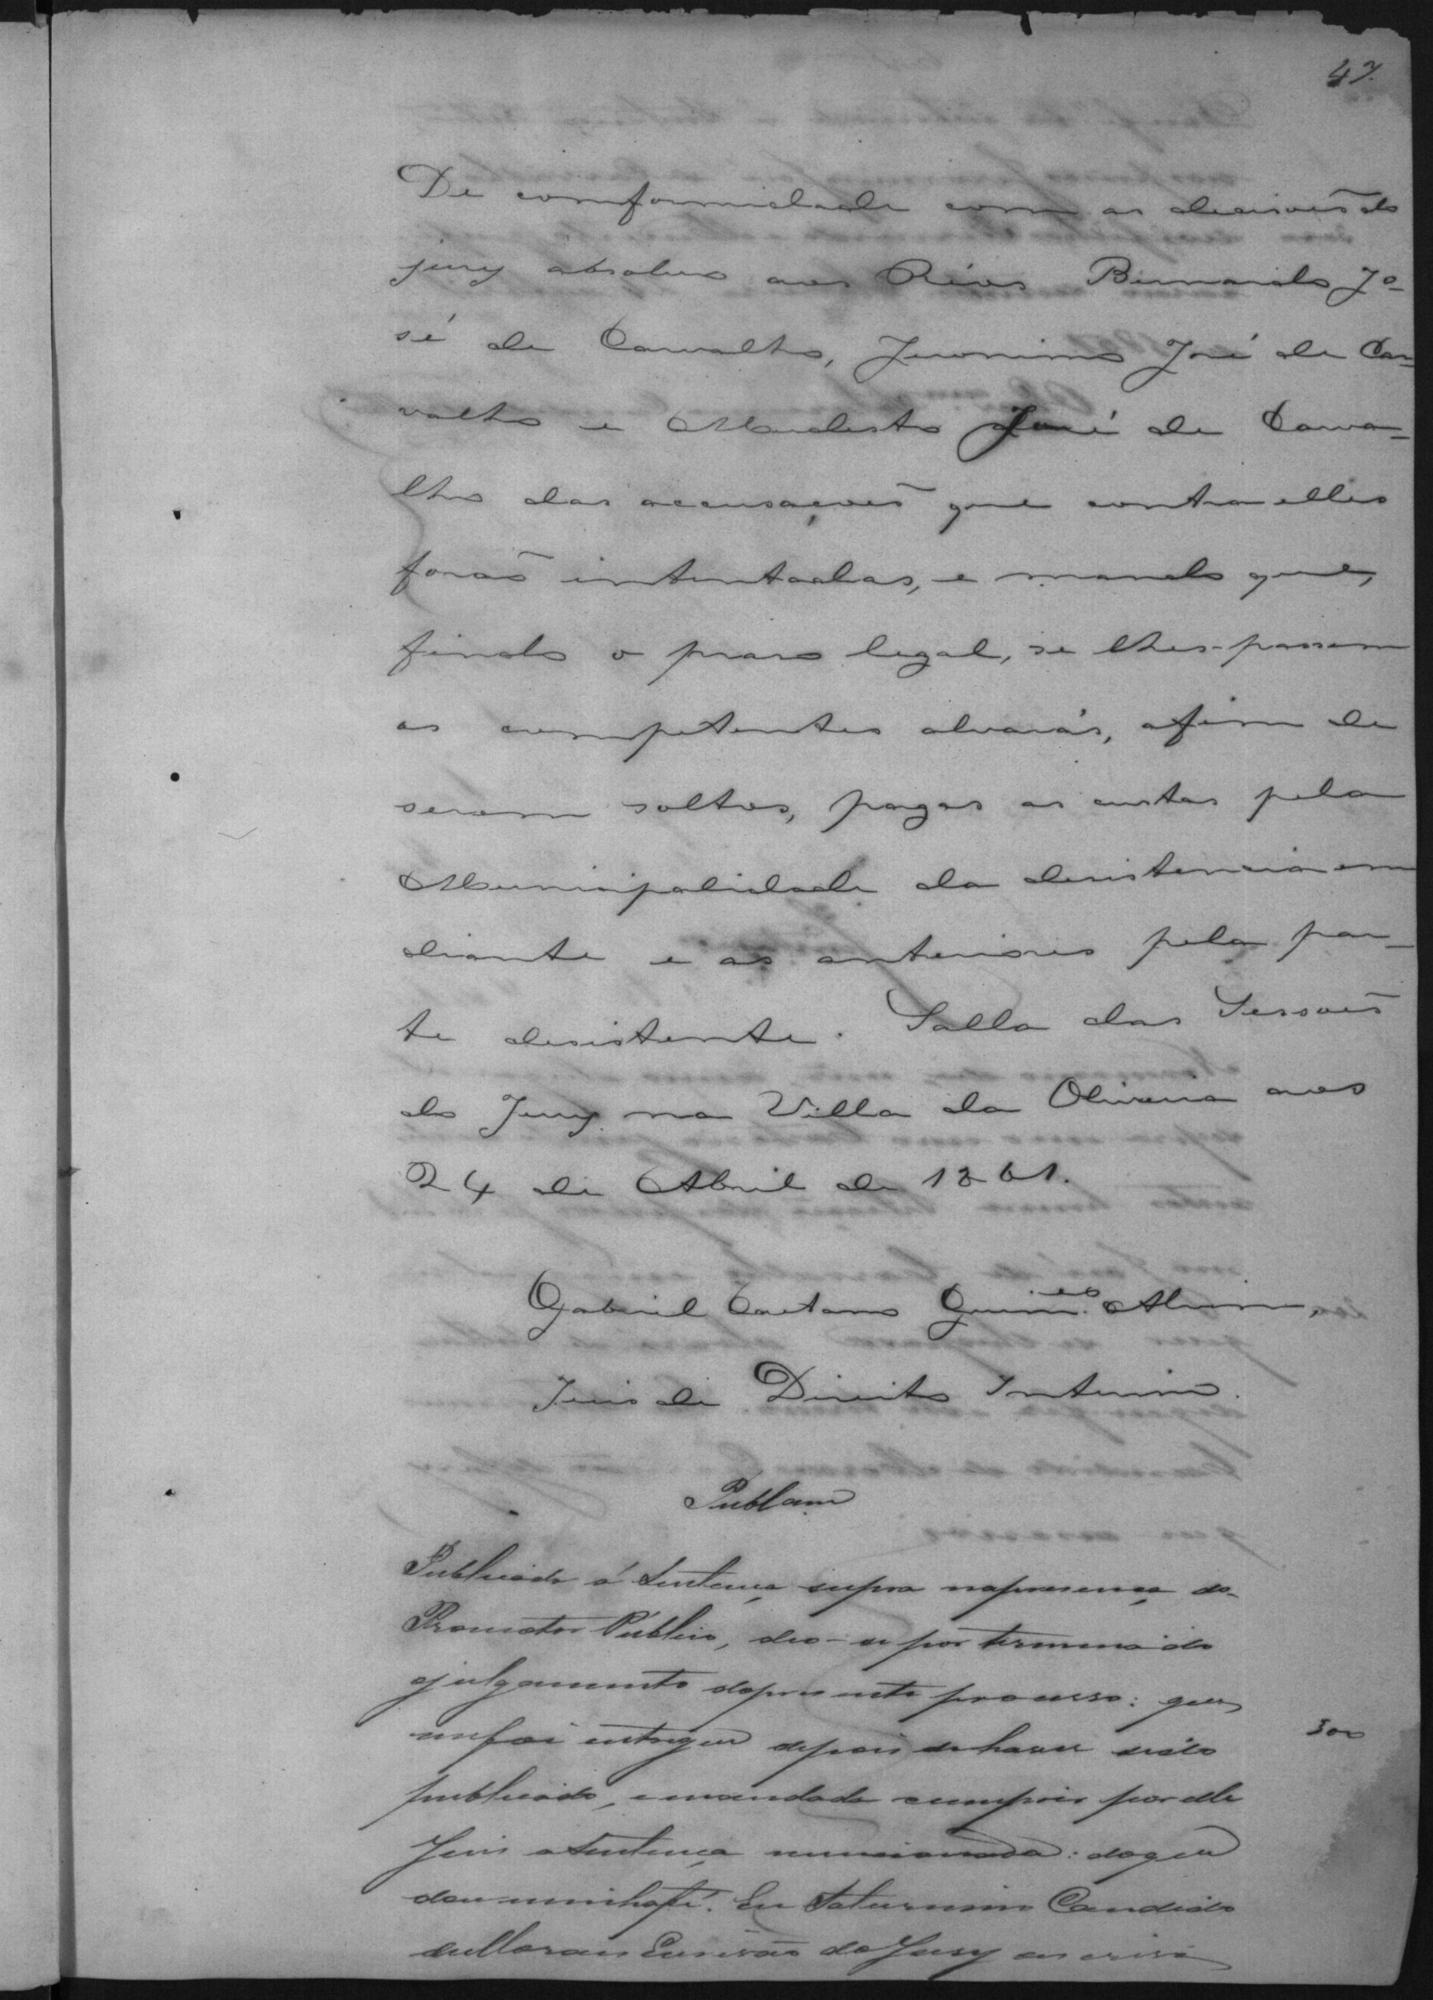 47.
De comformidade com as decisoẽs do
jury absolvo aos Réos Bernardo Jo-
sé de Carvalho, Jeronimo José de Car-
valho e Modesto José de Carva-
lho das accusaçoẽs que contra elles
forão intentadas, e mando que,
findo o praso legal, se lhes-passem
os competentes alvarás, afim de
serem soltos, pagas as custas pela
Municipalidade da desistencia em
diante e as anteriores pela par-
te desistente. Salla das Sessoẽs
do Jury na Villa da Oliveira aos
24 de Abril de 1861.
Gabriel Caetano Guim.es Alvim,
Juis de Direito Interino.
Publcam
Publicada a Sentença supra na presença do
Promotor Publico, deo-se por terminado o
julgamento do presente processo: que
me foi entregue depois de haver sido
publicada, e mandada cumprir por elle
Juis a Sentença mencionada: do que
dou minha fé. Eu Saturnino Candido
de Moraes Escrivão do Jury o escrevi
300